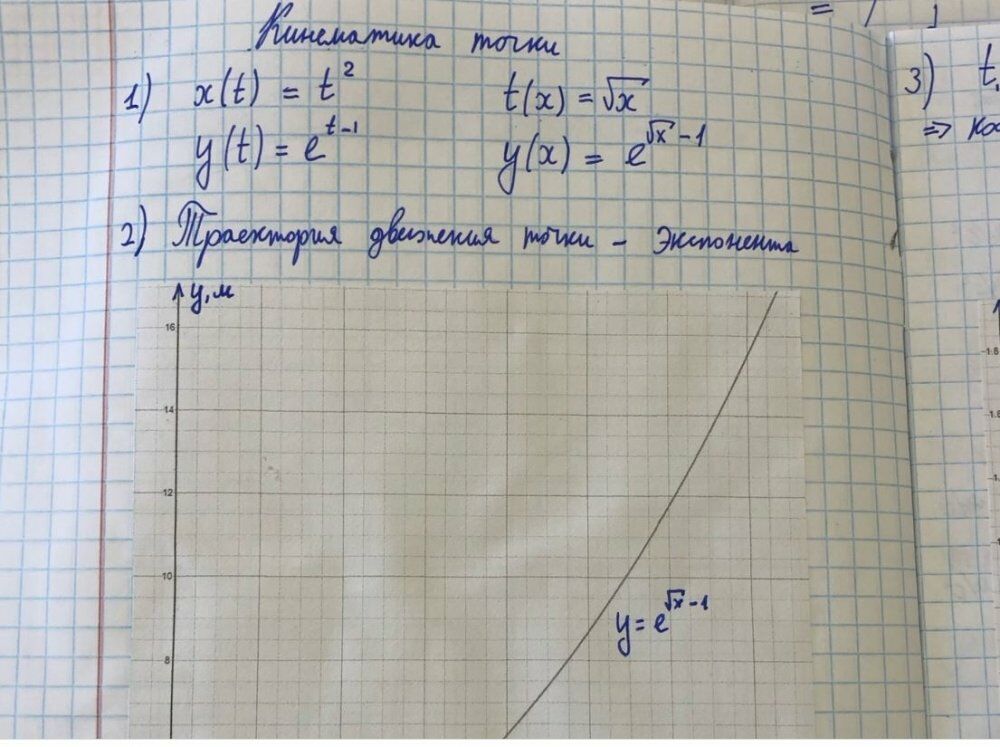 Кинематика точки
1) x(t) = t² t(x) = √x
y(t) = e^(t-1) y(x) = e^(√x - 1)
2) Траектория движения точки - Экспонента
y, м
16
14
12
10
8
y = e^(√x - 1)
3) t
⇒
1.8